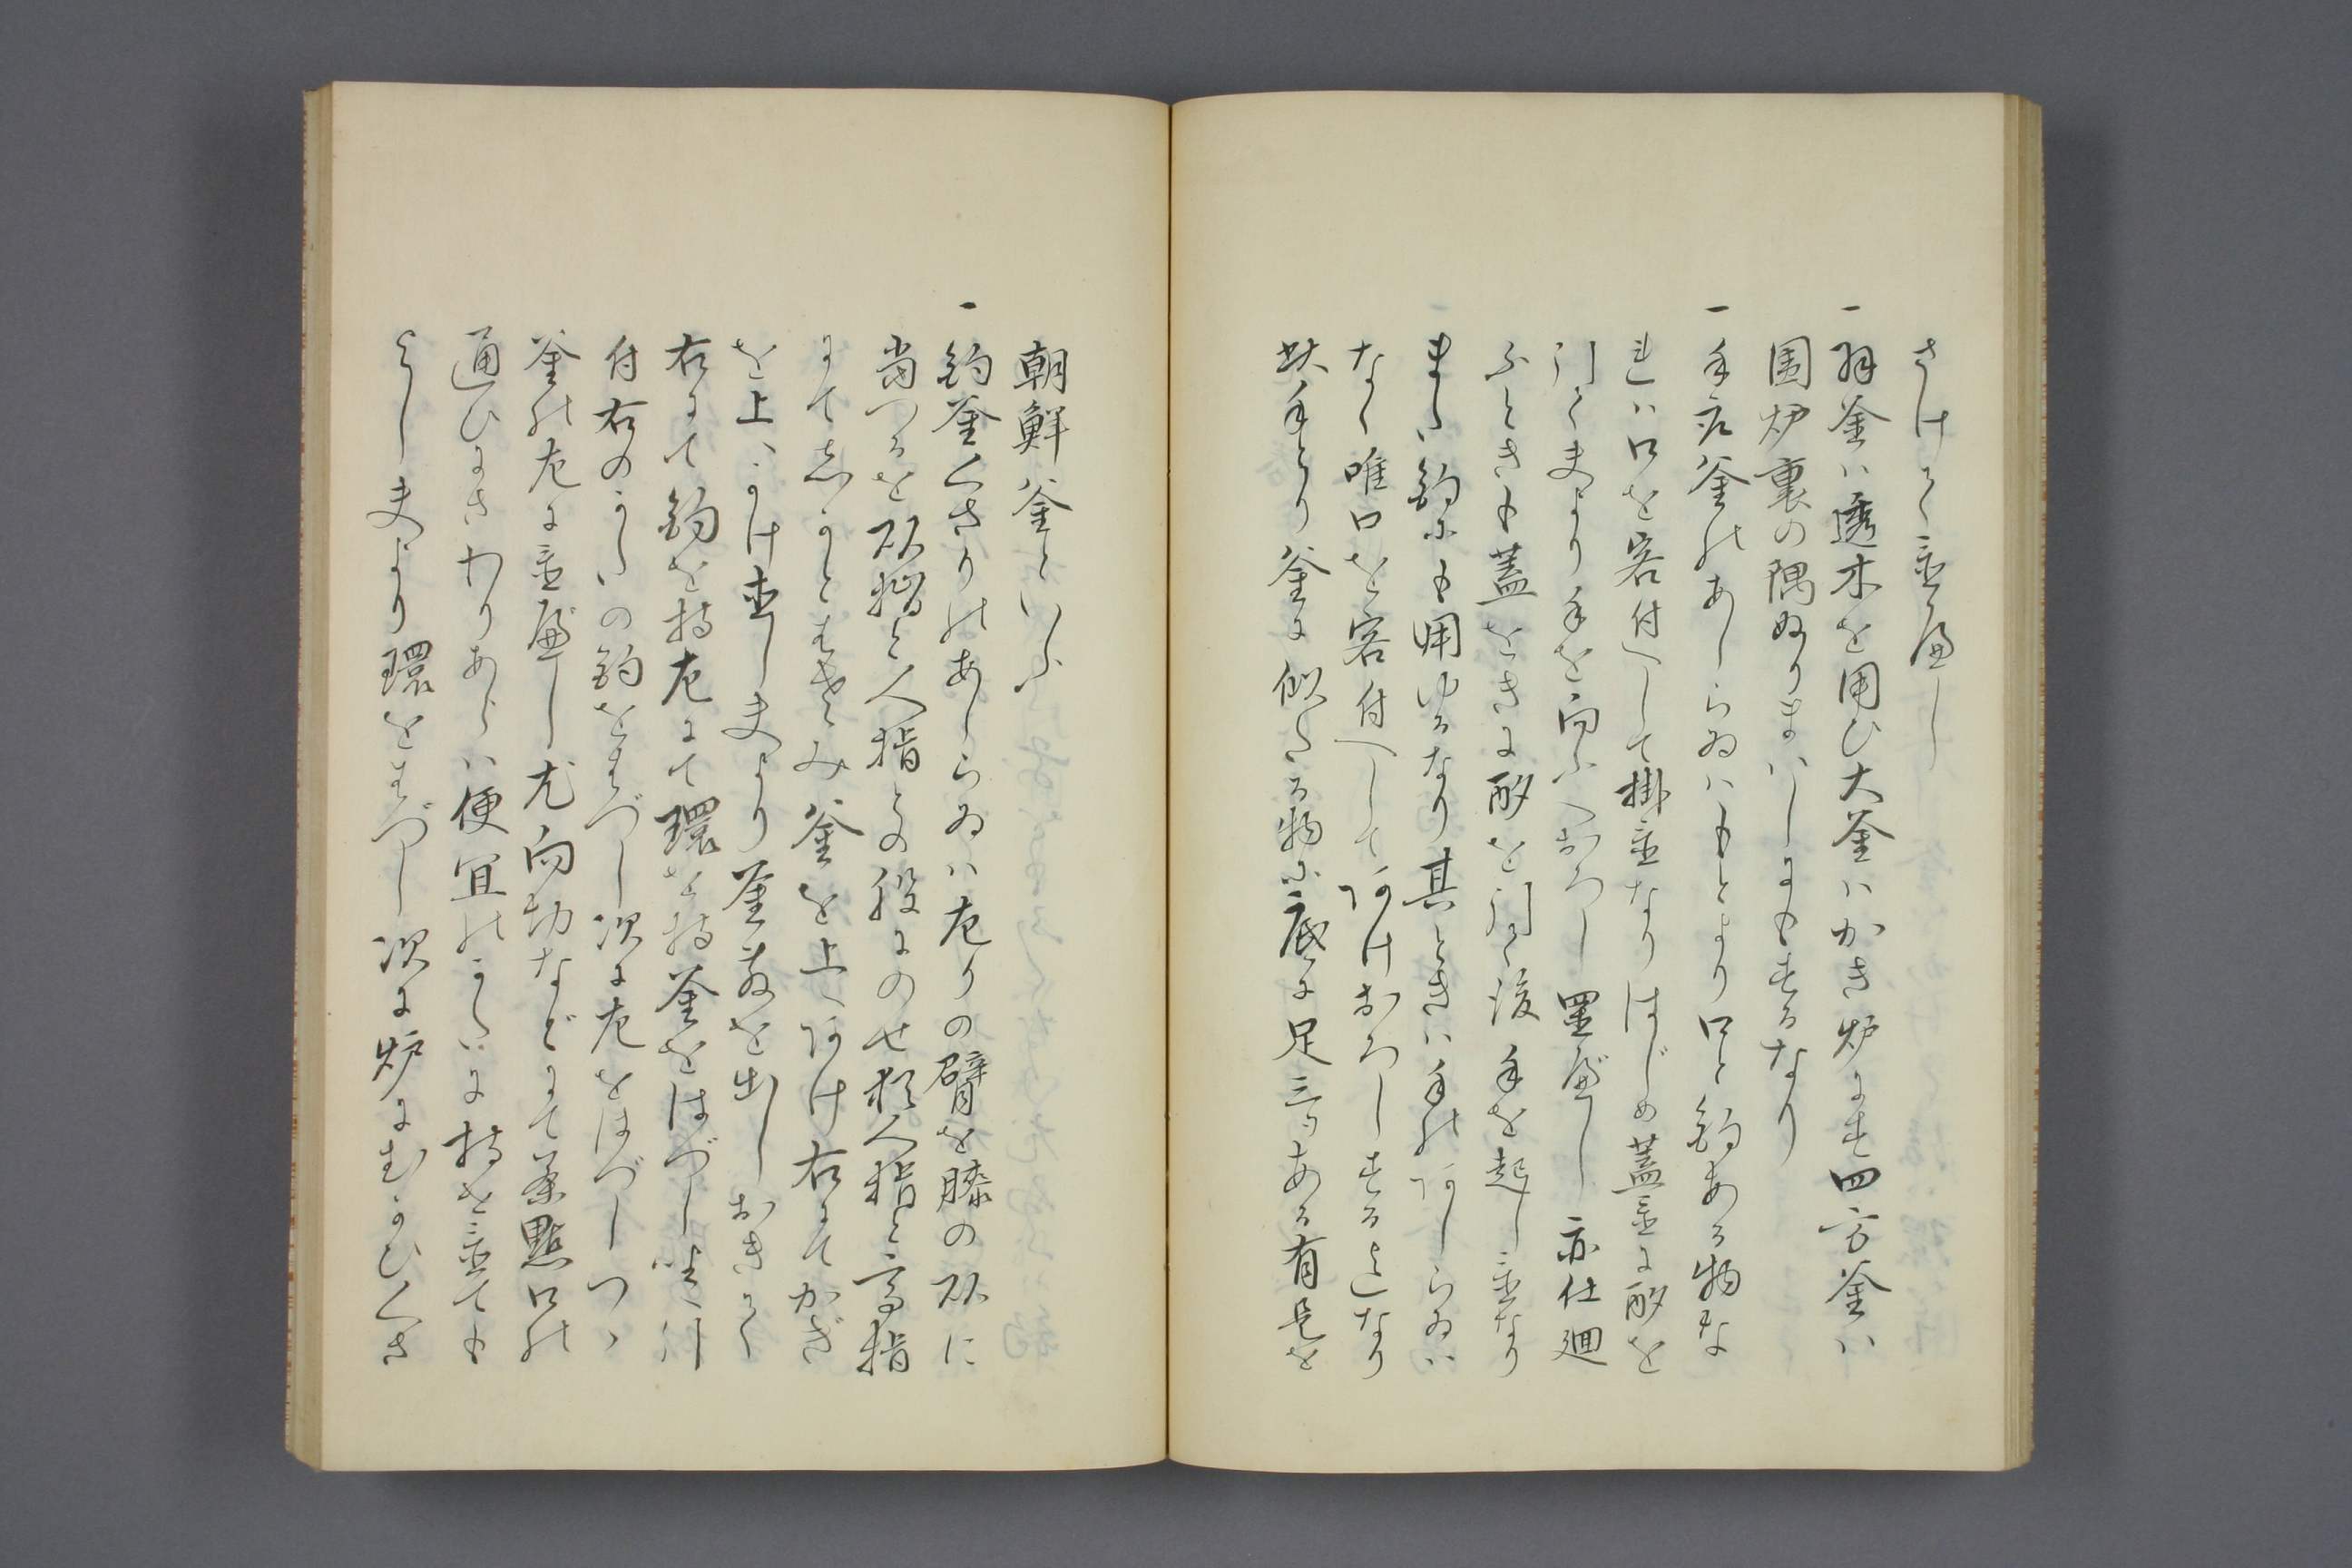 さけて置べし
一羽釜ハ透木を用ひ大釜ハかき炉にす四方釜ハ
囲炉裏の隅ぬりまハしにもするなり
一手取釜のあしらゐハもとより口と釣ある物な
れハ口を客付へして掛置なりはじめ蓋置に酌を
引て夫より手を向ふへおろし置べし亦仕廻
ふときも蓋をきに酌を引て後手を起し置なり
また釣にも用ゆるなり其ときハ手のあしらゐハ
なく唯口を客付へしてあけおろしする迄なり
此手とり釜に似たる物に底に足三ツある有是を
朝鮮釜といふ
一釣釜くさりのあしらゐハ左りの臂を膝の所に
当つるを頭指と人指との股にのせ人指と高指
にて志かとはさみ釜を上へあけ右にてかぎ
を上へかけ直し夫より釜敷を出しおきて
右にて釣を持左にて環を持釜をはづし畳へ
付右のかたの釣をはづし次に左をはづしつゝ
釜の左に置べし尤向切などにて茶點口の
通ひにさわりあらハ便宜のかたに持を置ても
よし夫より環をはづし次に炉にむかひくさ